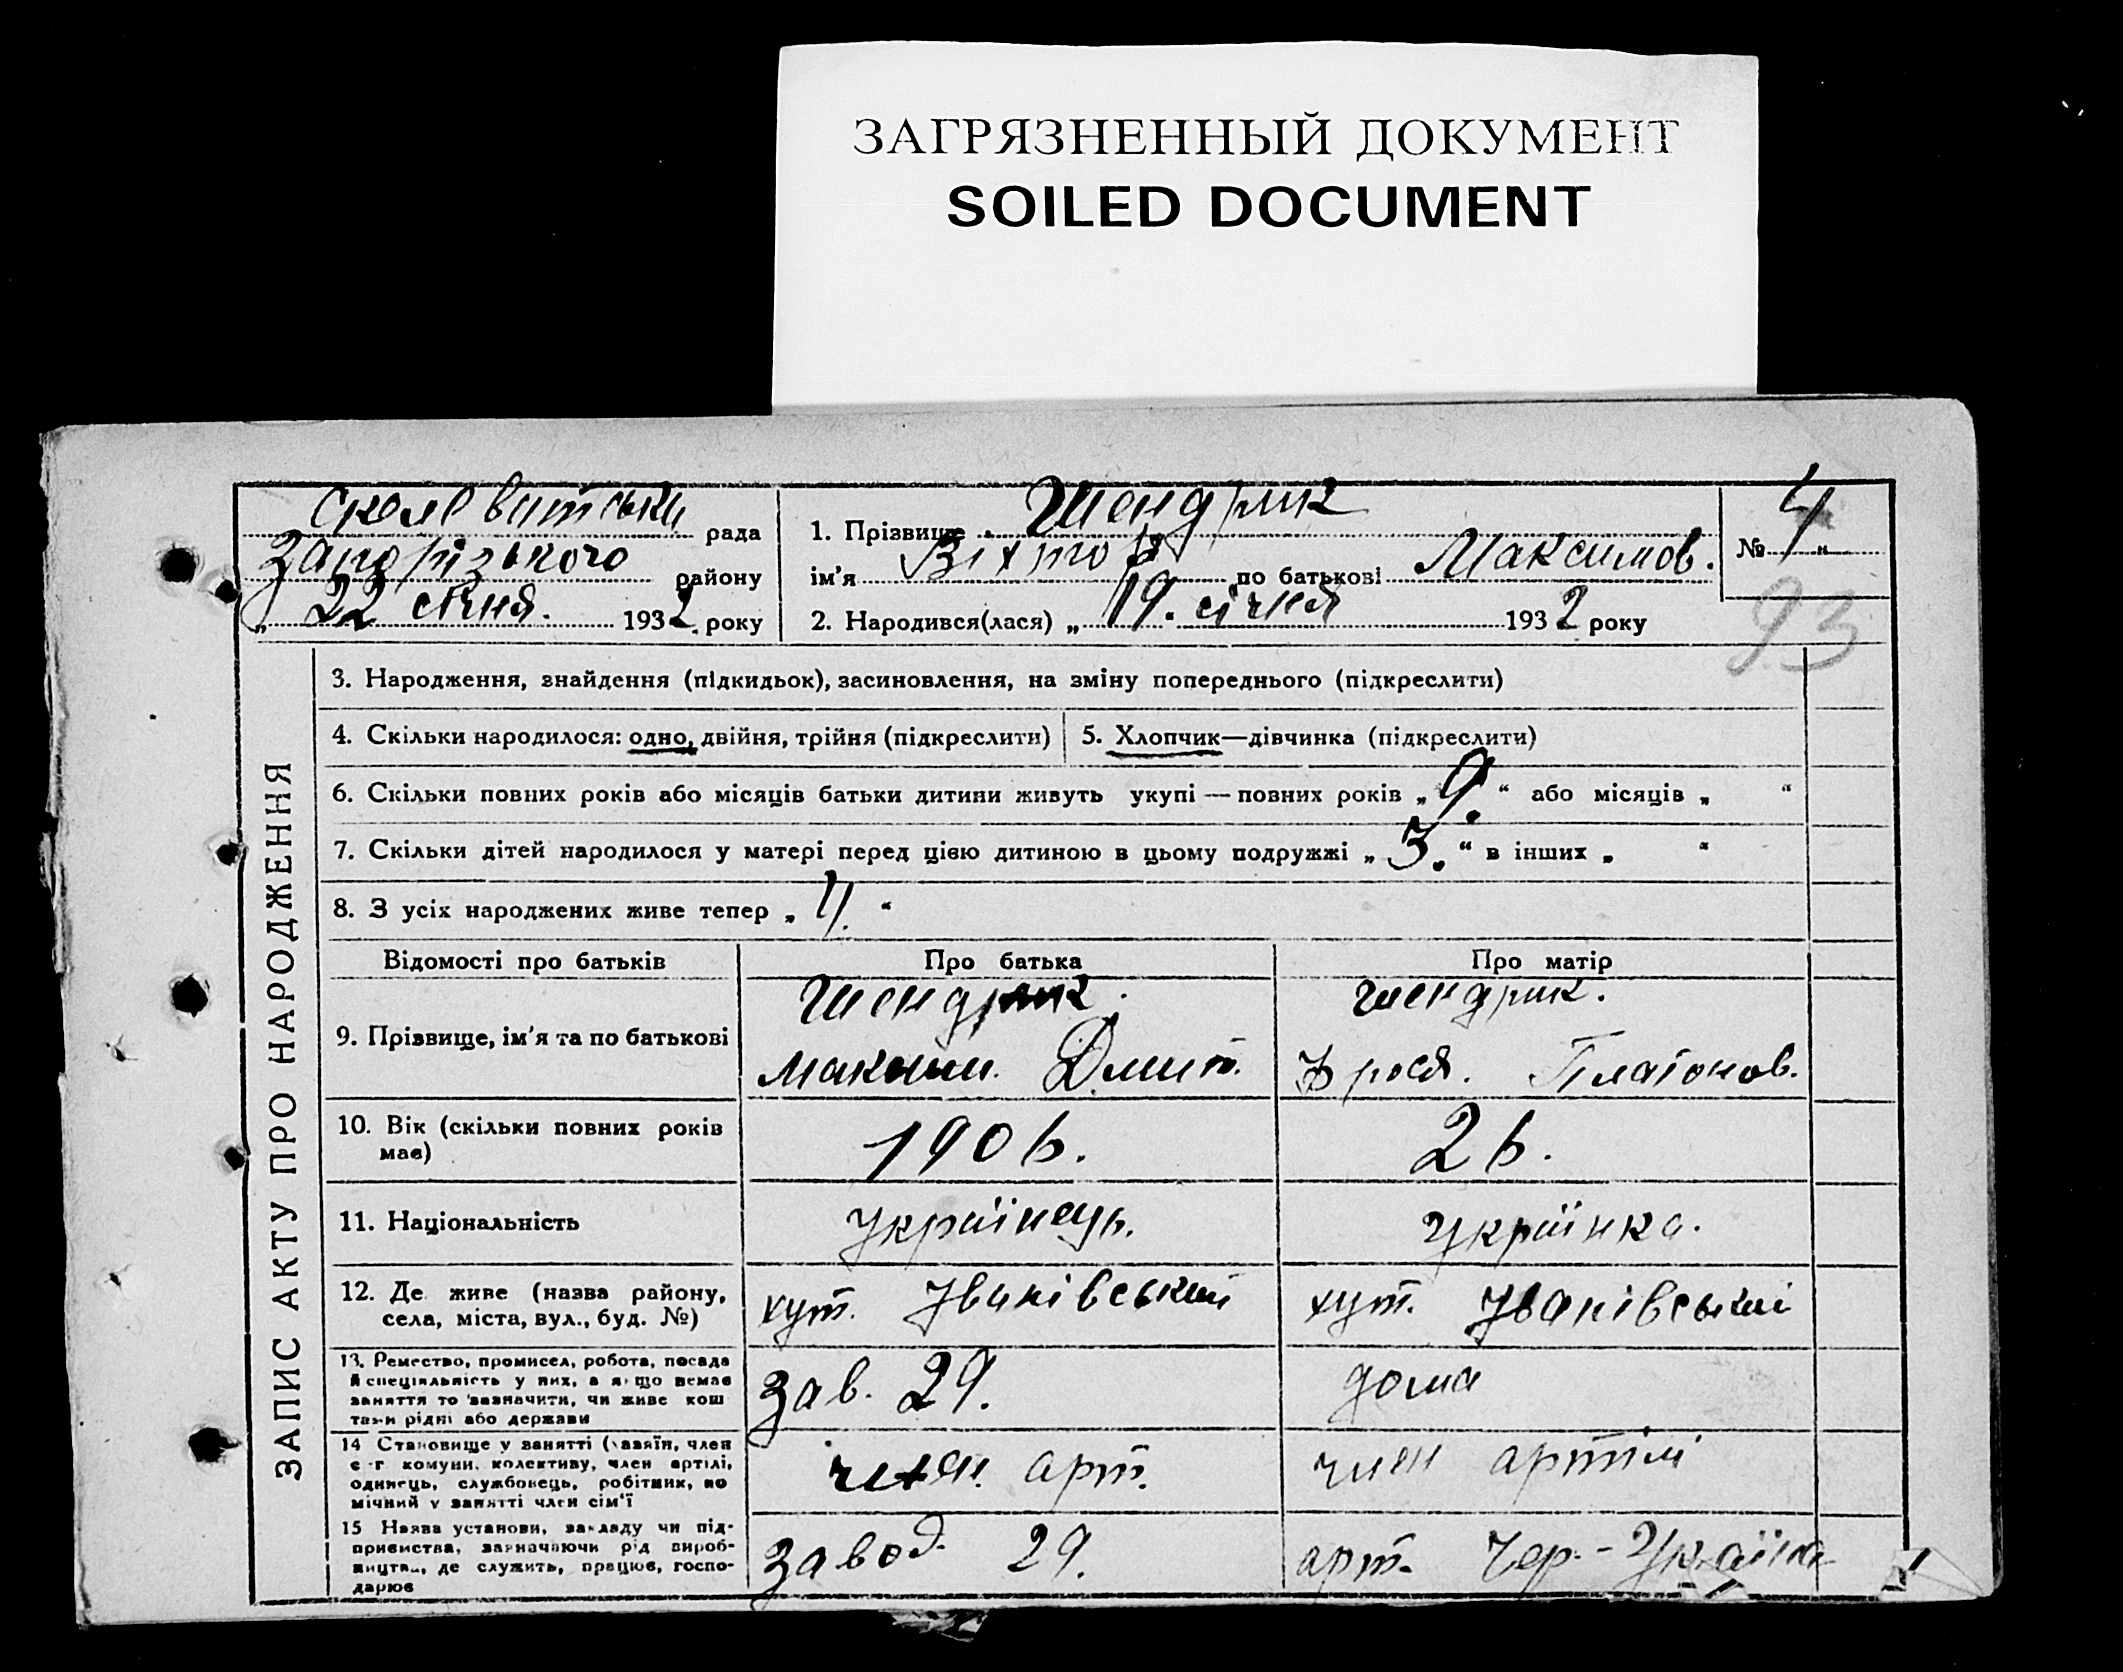 ЗАГРЯЗНЕННЫЙ ДОКУМЕНТ
SOILED DOCUMENT
рада
Запорізького району
„ 22 січня. 1932. року
1. Прізвище Шендрик
ім'я Віктор по батькові Максимов.
2. Народився(лася) „ 19. січня 1932 року
№ 4 "
93
ЗАПИС АКТУ ПРО НАРОДЖЕННЯ
3. Народження, знайдення (підкидьок), засиновлення, на зміну попереднього (підкреслити)
4. Скільки народилося: одно, двійня, трійня (підкреслити)
5. Хлопчик—дівчинка (підкреслити)
6. Скільки повних років або місяців батьки дитини живуть укупі — повних років „ 9. “ або місяців „ “
7. Скільки дітей народилося у матері перед цією дитиною в цьому подружжі „ 3. “ в інших „ “
8. З усіх народжених живе тепер „ 4. “
Відомості про батьків
Про батька
Про матір
9. Прізвище, ім'я та по батькові
Шендрик.
Максим. Дмит.
Шендрик.
Платонов.
10. Вік (скільки повних років
має)
1906.
26.
11. Національність
Українець.
Українка.
12. Де живе (назва району,
села, міста, вул., буд. №)
хут. Іванівський
хут. Іванівський
13. Ремество, промисел, робота, посада
й спеціяльність у них, а якщо немає
заняття то зазначити, чи живе кош
тами рідні або держави
Зав. 29.
дома
14 Становище у занятті (хазяїн, член
с-г комуни, колективу, член артілі,
одинець, службовець, робітник, по
мічний у занятті член сім'ї
член. арт.
член артілі
15 Назва установи, закладу чи під-
приємства, зазначаючи рід вироб-
ництва, де служить, працює, госпо-
дарює
Завод. 29.
арт. Чер.-Україна